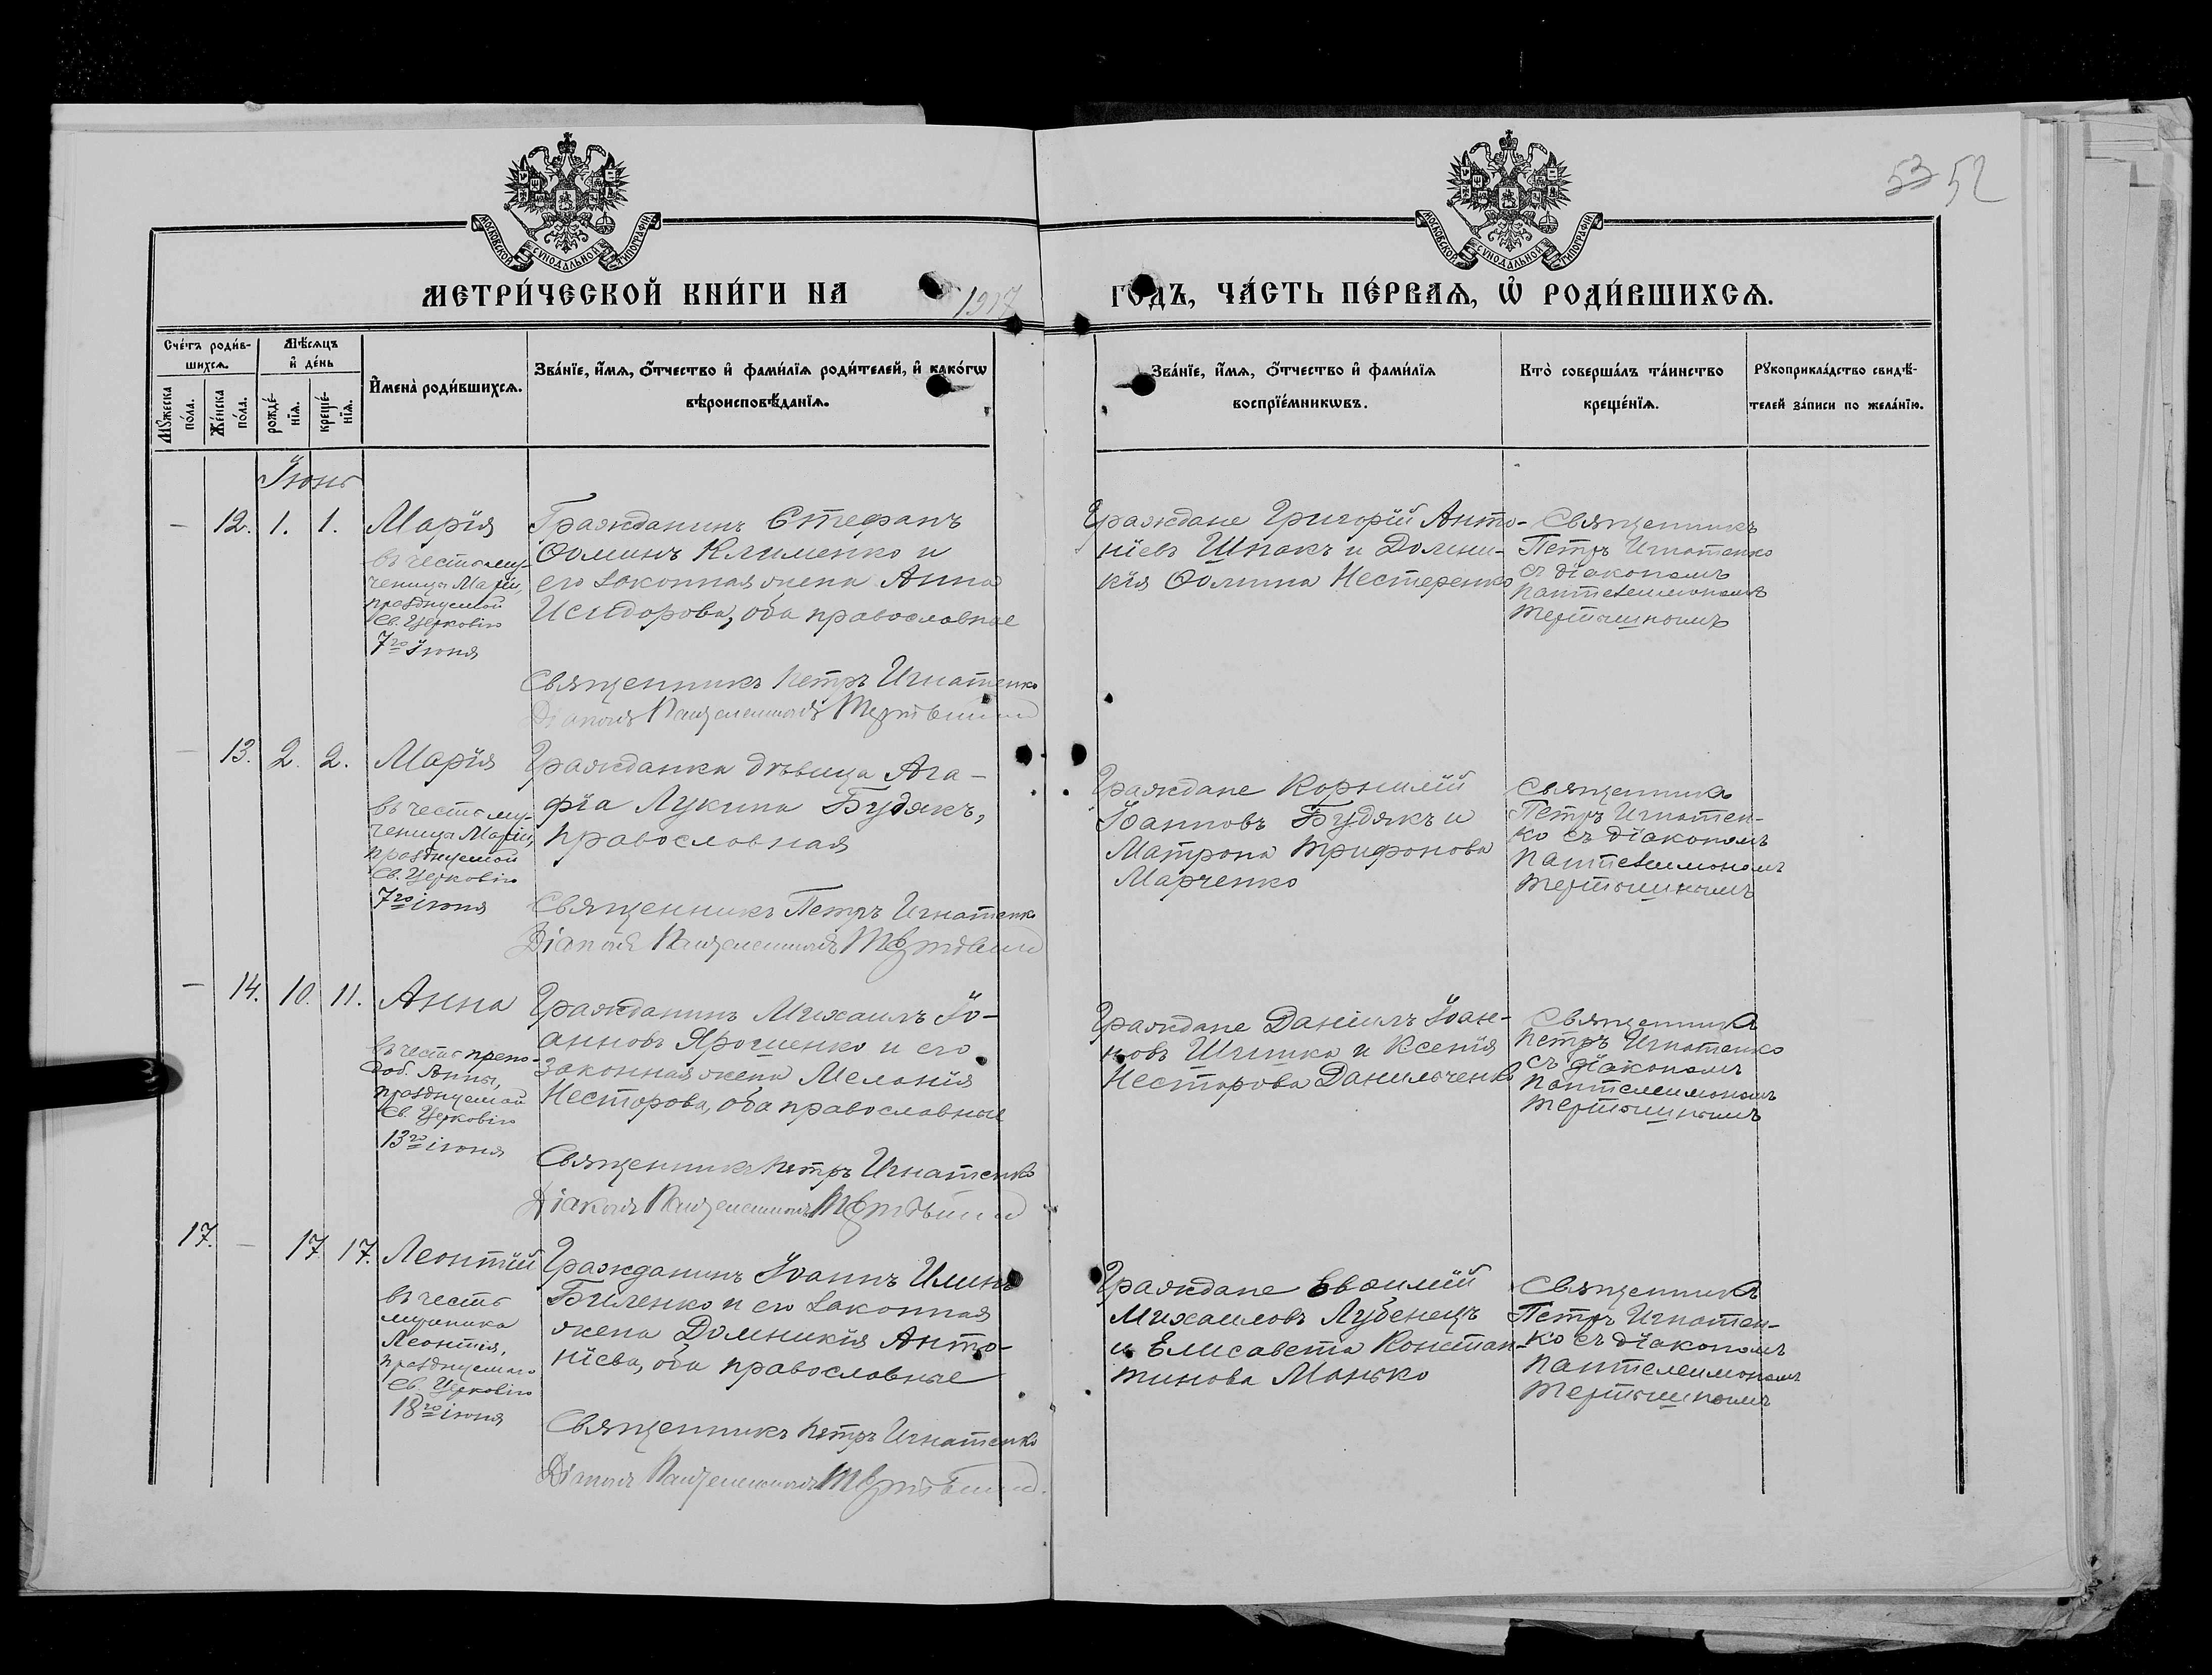 53 52
МОСКОВСКОЙ СУНОДАЛЬНОЙ ТИПОГРАФІИ
МОСКОВСКОЙ СУНОДАЛЬНОЙ ТИПОГРАФІИ
МЕТРИ́ЧЕСКОЙ КНИ́ГИ НА 1917
ГОДЪ, ЧА́СТЬ ПЕ́РВАѦ, Ѡ҆ РОДИ́ВШИХСѦ.
Сче́тъ роди́в-
шихсѧ.
Мѣ́сѧцъ
и҆ де́нь
Мꙋ́жеска
по́ла.
Же́нска
по́ла.
рожде́-
нїѧ.
креще́-
нїѧ.
И҆мена̀ роди́вшихсѧ.
Зва́нїе, и҆́мѧ, ѻ҆́тчество и҆ фами́лїѧ роди́телей, и҆ како́гѡ
вѣроисповѣ́данїѧ.
Зва́нїе, и҆́мѧ, ѻ҆́тчество и҆ фами́лїѧ
воспрїе́мникѡвъ.
Кто̀ соверша́лъ та́инство
креще́нїѧ.
Рꙋкоприкла́дство свидѣ́-
телей за́писи по жела́нїю.
Іюнь
— 12. 1. 1.
Марія
въ честь му-
ченицы Маріи,
празднуемой
Св. Церковію
7го Іюня
Гражданинъ Стефанъ
Ѳоминъ Клименко и
его законная жена Анна
Исидорова, оба православные
Священникъ Петръ Игнатенко
Діаконъ Пантелеимонъ
Граждане Григорій Анто-
ніевъ Шпакъ и Домни-
кія Ѳомина Нестеренко
Священникъ
Петръ Игнатенко
съ діакономъ
Пантелеимономъ
— 13. 2. 2.
Марія
въ честь му-
ченицы Маріи,
празднуемой
Св. Церковію
7го іюня
Гражданка дѣвица Ага-
фіа Лукина Будякъ,
православная
Священникъ Петръ Игнатенко
Діаконъ Пантелеимонъ
Граждане Корнилій
Іоанновъ Будякъ и
Матрона Трифонова
Марченко
Священникъ
Петръ Игнатен-
ко съ діакономъ
Пантелеимономъ
— 14. 10. 11.
Анна
въ честь препо-
доб. Анны,
празднуемой
Св. Церковію
13го іюня
Гражданинъ Михаилъ Іо-
анновъ Ярошенко и его
законная жена Меланія
Несторова, оба православные
Священникъ Петръ Игнатенко
Діаконъ Пантелеимонъ
Граждане Даніилъ Іоан-
новъ Шишка и Ксенія
Несторова Данильченко
Священникъ
Петръ Игнатенко
съ діакономъ
Пантелеимономъ
17. — 17. 17.
Леонтій
въ честь
мученика
Леонтія,
празднуемаго
Св. Церковію
18го іюня
Гражданинъ Іоаннъ Илинъ
Биленко и его законная
жена Домникія Анто-
ніева, оба православные
Священникъ Петръ Игнатенко
Діаконъ Пантелеимонъ
Граждане
Михаиловъ Лубенецъ
и Елисавета Констан-
тинова Манько
Священникъ
Петръ Игнатен-
ко съ діакономъ
Пантелеимономъ